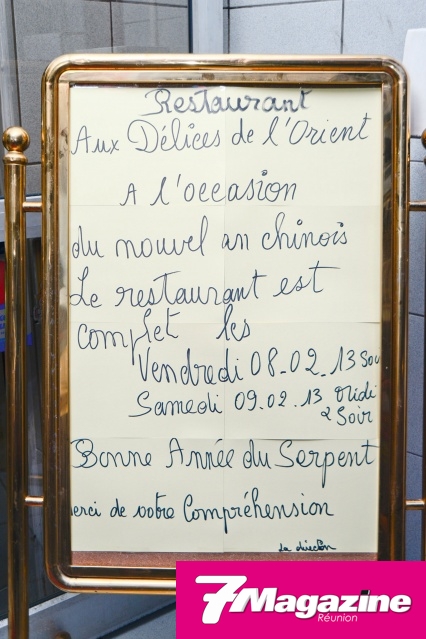 Restaurant
Aux Délices de l'Orient
A l'occasion
du nouvel an chinois
Le restaurant est
complet les
Vendredi 08-02-13 Soir
Samedi 09.02.13 Midi
& Soir
Bonne Année du Serpent
Merci de votre Compréhension
La direction
7Magazine
Réunion